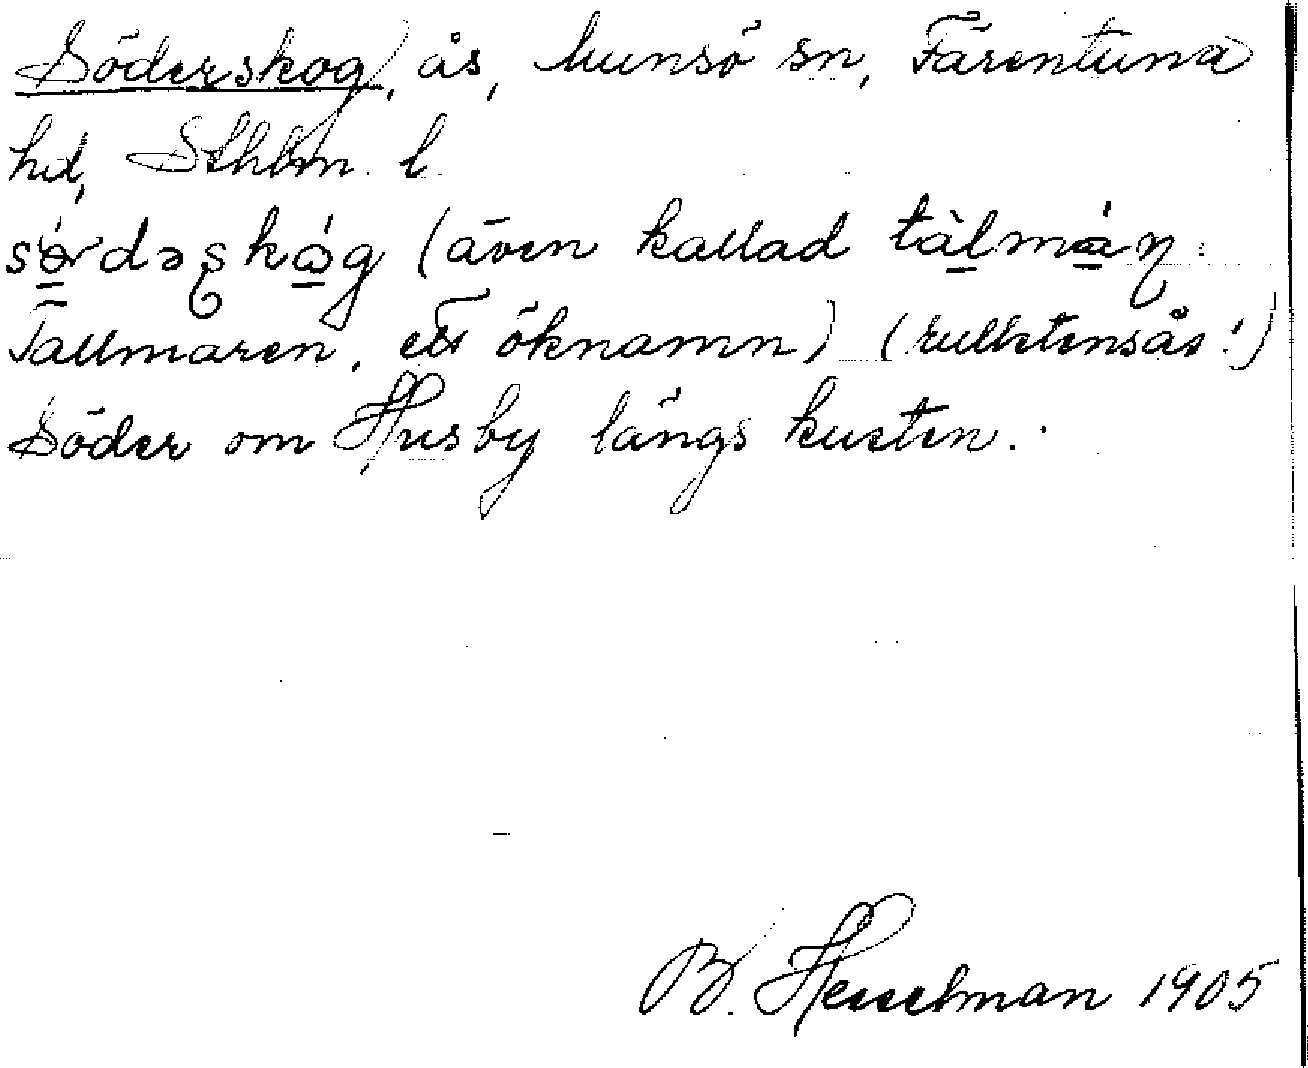 Söderskog, ås, Munsö sn, Färentuna
hd, Sthlm. l.
(även kallad
Tallmaren, ett öknamn) (rullstensås!)
Söder om Husby längs kusten.
B. Hesselman 1905